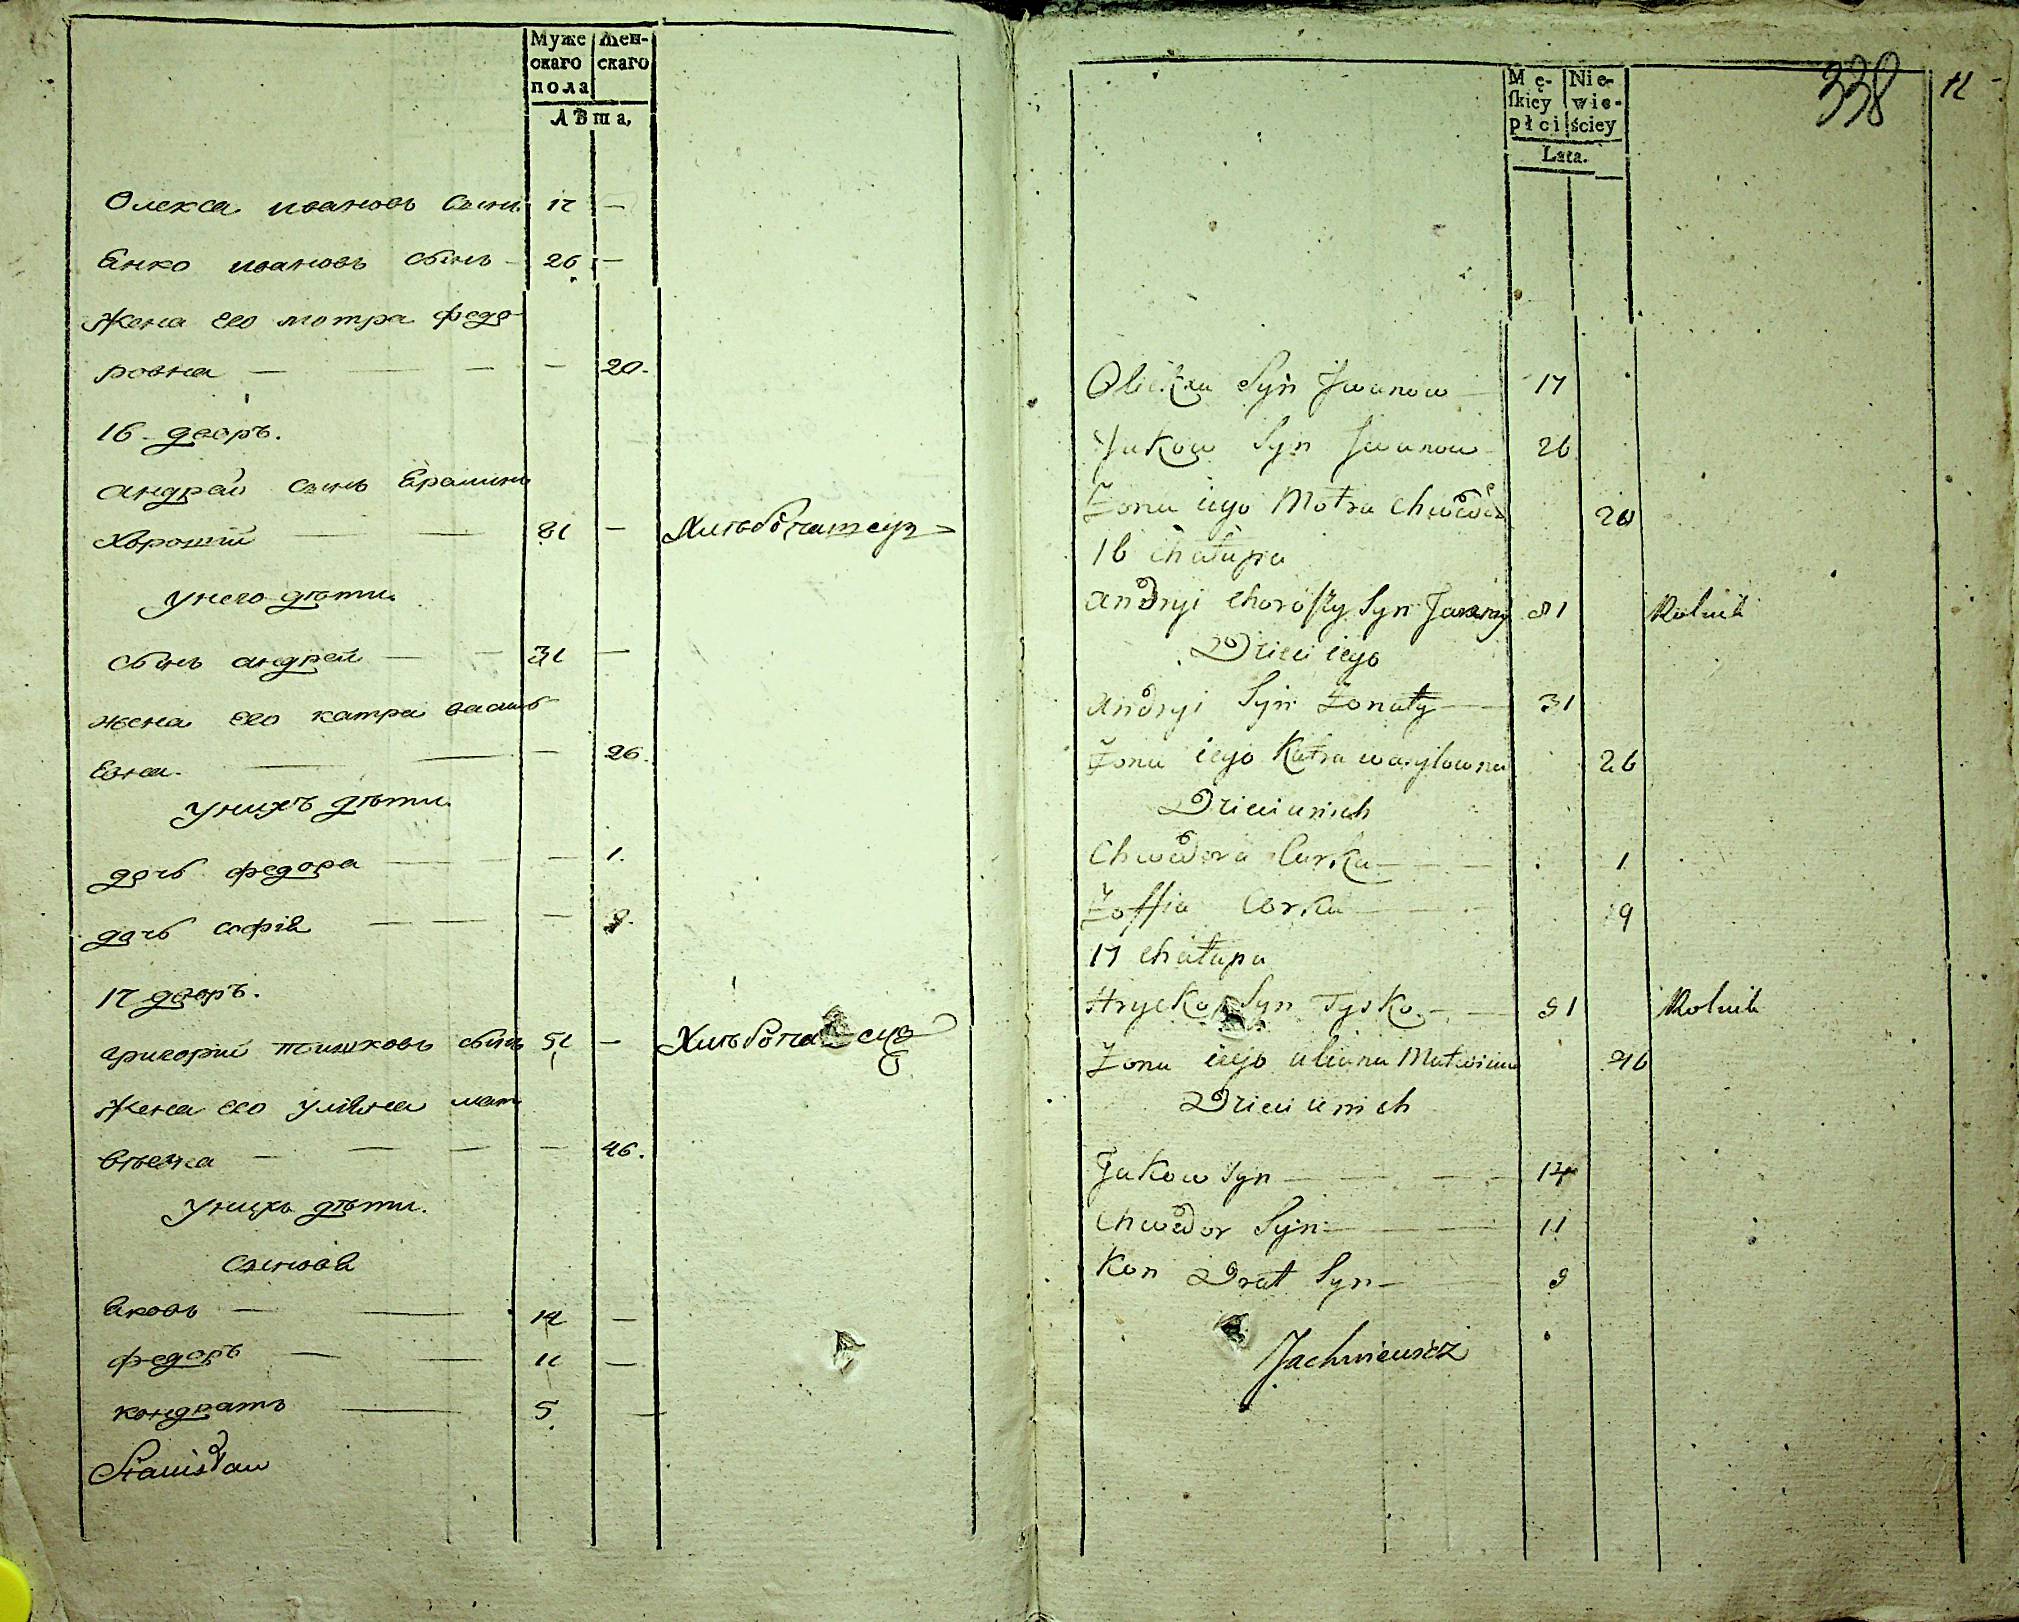 Муже Жен-
скаго скаго
пола
Лѣта,
Олекса ивановъ сынъ 17 —
Енко ивановъ сынъ 26 —
Жена его мотра федо-
ровна — — — — 20.
16 дворъ.
андрей сынъ
Хорошій — — 81 — Хлѣбопашецъ
у него дѣти
сынъ андрей — — 31 —
жена его катра василь
евна. — — — 26.
у нихъ дѣти.
дочь федора — — — 1.
дочь софія — — — 9.
17 дворъ.
григорій тишковъ сынъ 51 — Хлѣбопашецъ
Жена его уліяна мат
вѣевна — — — — 46.
у нихъ дѣти.
сыновя
яковъ — — 14 —
федоръ — — 11 —
кондратъ — 5 —
Stanisław
338
Mę- Nie-
ſkiey wie-
płci ściey
Lata.
Olieksa Syn Jwanow — 17
Jakow Syn Jwanow 26
Żona iego Motra Chwedo 20
16 chałupa
andryi Choroſzy Syn 81 Rolnik
Dzieci iego
andryi Syn Żonaty — 31
Żona iego Katra wasylowna 26
Dzieci u nich
Chwedora Curka — — — 1
Zoffia Corka — — — 9
17 chałupa
Hrycko Syn Tysko — — 51 Rolnik
Żona iego uliana 46
Dzieci u nich
Jakow Syn — — — 14
Chwedor Syn — — — 11
Kon Drat Syn — — 9
Jachniewicz